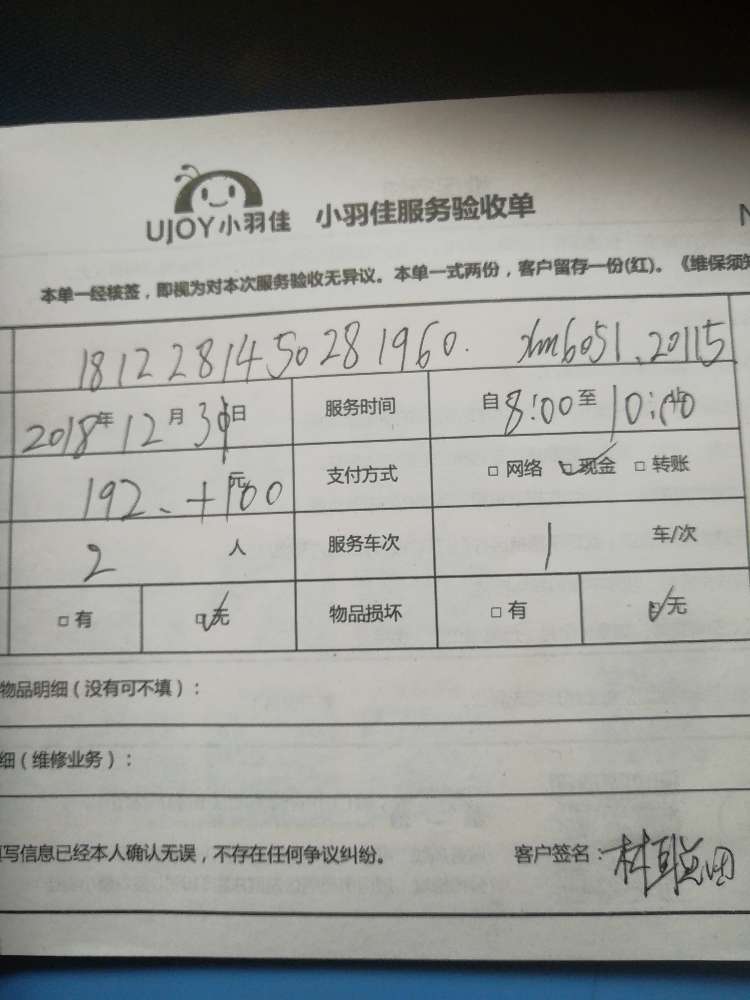 UJOY小羽佳 小羽佳服务验收单
N
本单一经核签，即视为对本次服务验收无异议。本单一式两份，客户留存一份(红)。《维保须知
1812281450281960. xm6051.20115
2018年12月30日 服务时间 自8:00至10:00
192.+100元 支付方式 □网络 ☑现金 □转账
2人 服务车次 1车/次
□有 ☑无 物品损坏 □有 ☑无
物品明细（没有可不填）：
细（维修业务）：
填写信息已经本人确认无误，不存在任何争议纠纷。 客户签名：